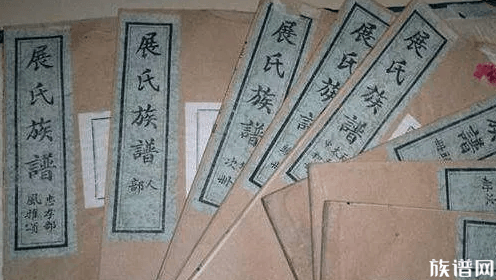 展氏族譜
忠孝部
風雅頌
展氏族譜
人部
展氏族譜
次册
展氏族譜
展氏族譜
譜
族谱网